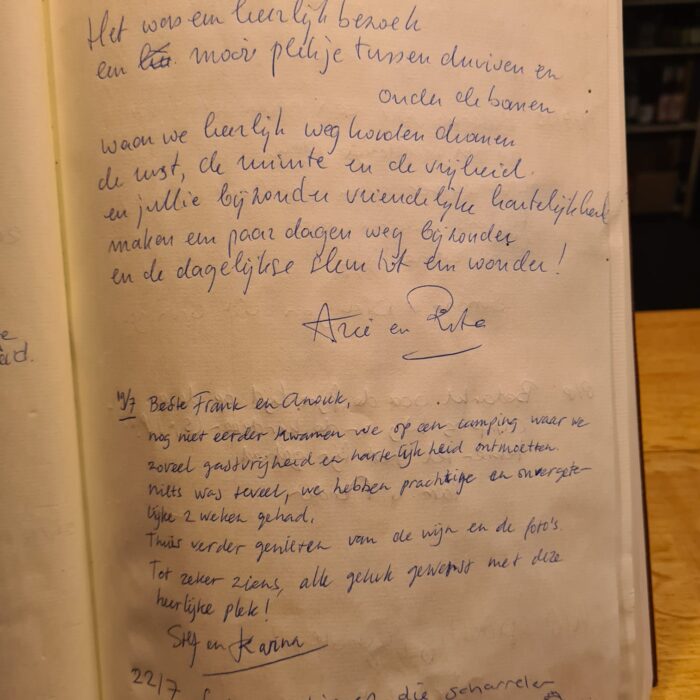 Het was een heerlijk bezoek
een mooi plekje tussen druiven en
onder de bomen
waar we heerlijk weg konden dromen
de rust, de ruimte en de vrijheid.
en jullie bijzonder vriendelijke hartelijkheid
maken een paar dagen weg bijzonder
en de dagelijkse sleur tot een wonder!
Arie en Rita
19/7 Beste Frank en Anouk,
nog niet eerder kwamen we op een camping waar we
zoveel gastvrijheid en hartelijkheid ontmoetten.
niets was teveel, we hebben prachtige en onvergete-
lijke 2 weken gehad.
Thuis verder genieten van de wijn en de foto's.
Tot zeker ziens, alle geluk gewenst met deze
heerlijke plek!
Stef en Karina
22/7
die scharrelen